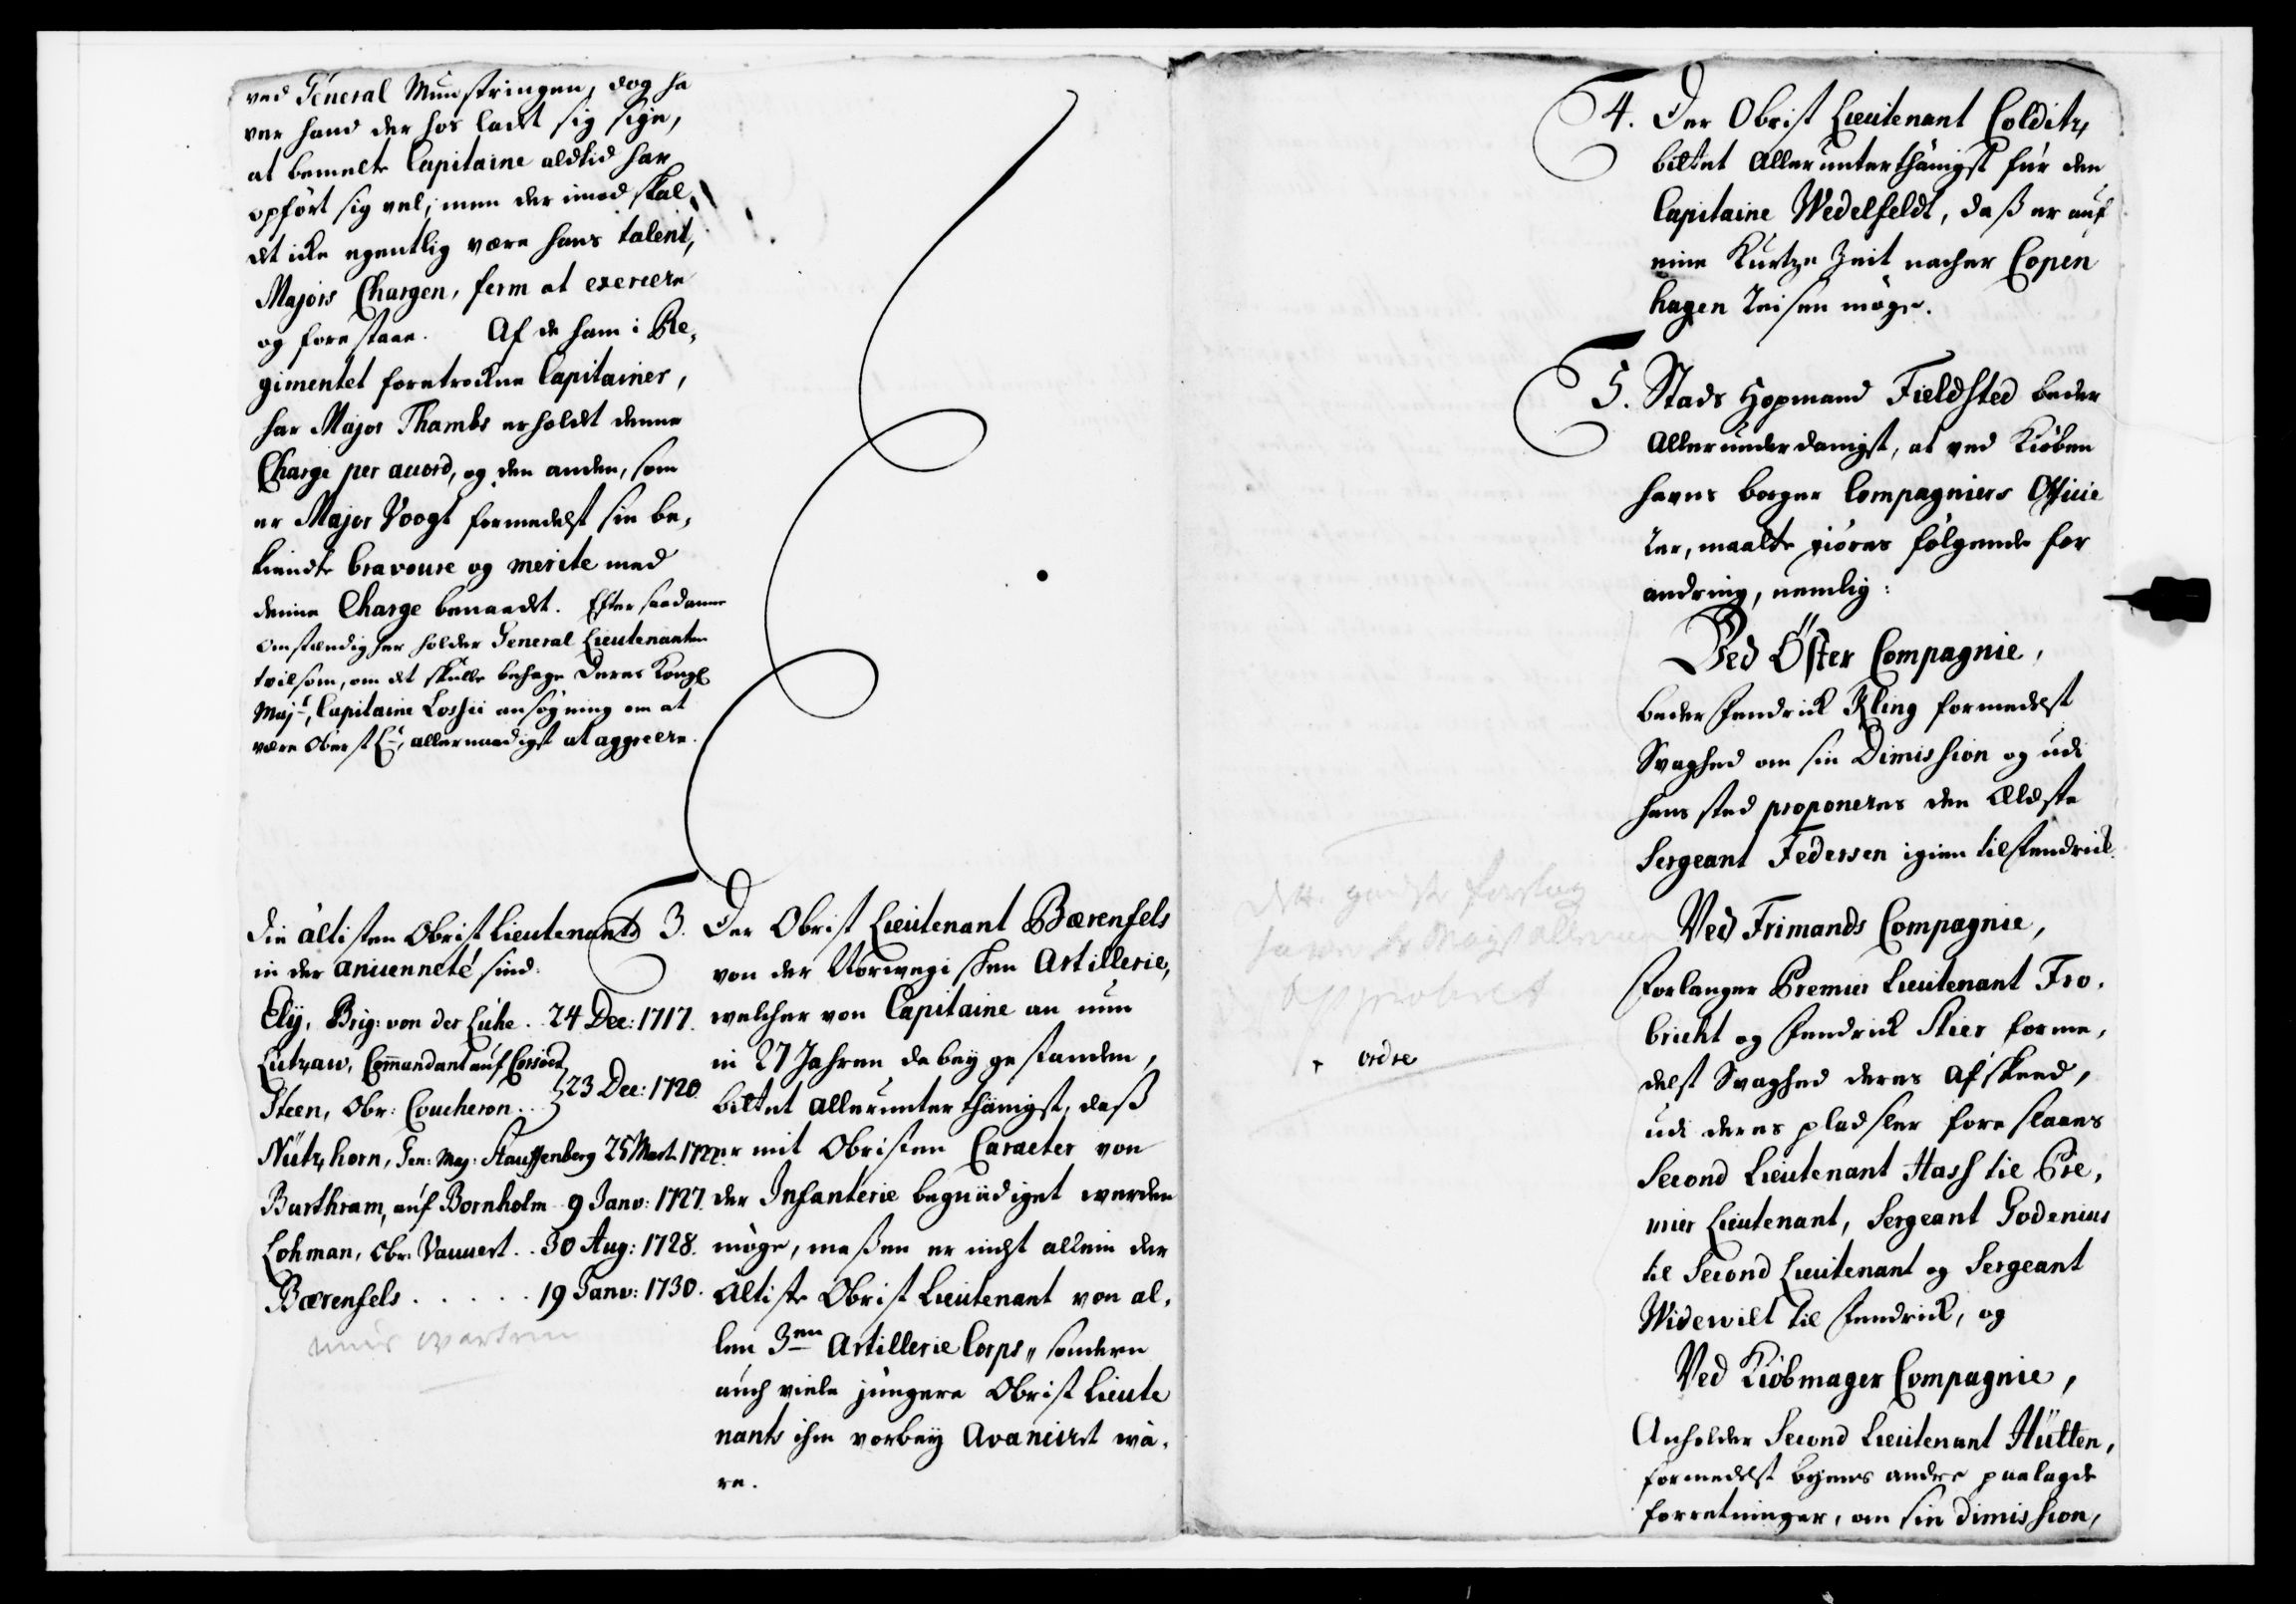 ved General Munstringen, dog ha
ver hand der hos ladet sig sige,
at bemelte Capitaine altid har
opført sig vel, men der imod skal,
det icke egentlig være hans talent,
Majors Chargen, ferm at exercere
og forestaae. Af de ham i Re,
gimentet foretrockne Capitainer,
har Major Thambs erholdt denne
Charge per accord, og den anden, som
er Major Voogt formedelst sin be,
kiendte bravoure og merite med
denne Charge benaadet. Efter saadanne
Omstændigheder holder General Lieutenanten
tvilsom, om det skulle behage Deres Kongl
Majt, Capitaine Lossii ansøgning om at
være Oberst Lt, allernaadigst at aggreere.
Die ältisten Obrist Lieutenants
in der ancienneté sind.
Ely, Brig: von der Lühe .. 24 Dec: 1717.
Lützaw, Commandant auf Corsöer
Steen, Obr: Coucheron .. } 23 Dec: 1720.
Nützhorn, Gen: Maj: Stauffenberg 25 Mart. 1722.
Barthram, auf Bornholm 9 Janv: 1727.
Lohman, Obr. Vauuert .. 30 Aug: 1728.
Bærenfels . . . . . 19 Janv: 1730.
mus warten
3. Der Obrist Lieutenant Bærenfels
von der Norwegischen Artillerie,
welcher von Capitaine an nun
in 27 Jahren dabey gestanden,
bittet allerunterthänigst, daß
er mit Obristen Caracter von
der Infanterie begnädiget werden
möge, maßen er nicht allein der
ältiste Obrist Lieutenant von al,
len 3en Artillerie Corps, sondern
auch viele jüngere Obrist Lieute
nants ihm vorbey Avanciret wä,
re.
4. Der Obrist Lieutenant Colditz
bittet Allerunterthänigst für den
Capitaine Wedelfeldt, daß er auf
eine Kurtze Zeit nacher Copen
hagen Reisen möge.
5. Stads Hopmand Fieldsted beder
Allerunderdanigst, at ved Kiöben
havns borger Compagniers Officie
rer, maatte giöres fölgende for
andring, nemlig:
Ved Öster Compagnie,
beder Fendrick Kling formedelst
Svaghed om sin Dimission og udi
hans sted proponeres den Ældste
Sergeant Federsen igien til Fendrick.
Dette gandske forslag
haver Hs Mayst allernaa
Approberet
+ ordre
Ved Frimands Compagnie,
Forlanger Premier Lieutenant Fro,
bricht og Fendrick Stier forme,
delst Svaghed deres Afskeed,
udi deres pladser foreslaaes
Second Lieutenant Hass til Pre,
mier Lieutenant, Sergeant Godenius
til Second Lieutenant og Sergeant
Widewilt til Fendrick, og
Ved Kiöbmager Compagnie,
Anholder Second Lieutenant Hütten,
formedelst byens andre paalagde
forretninger, om sin Dimission,